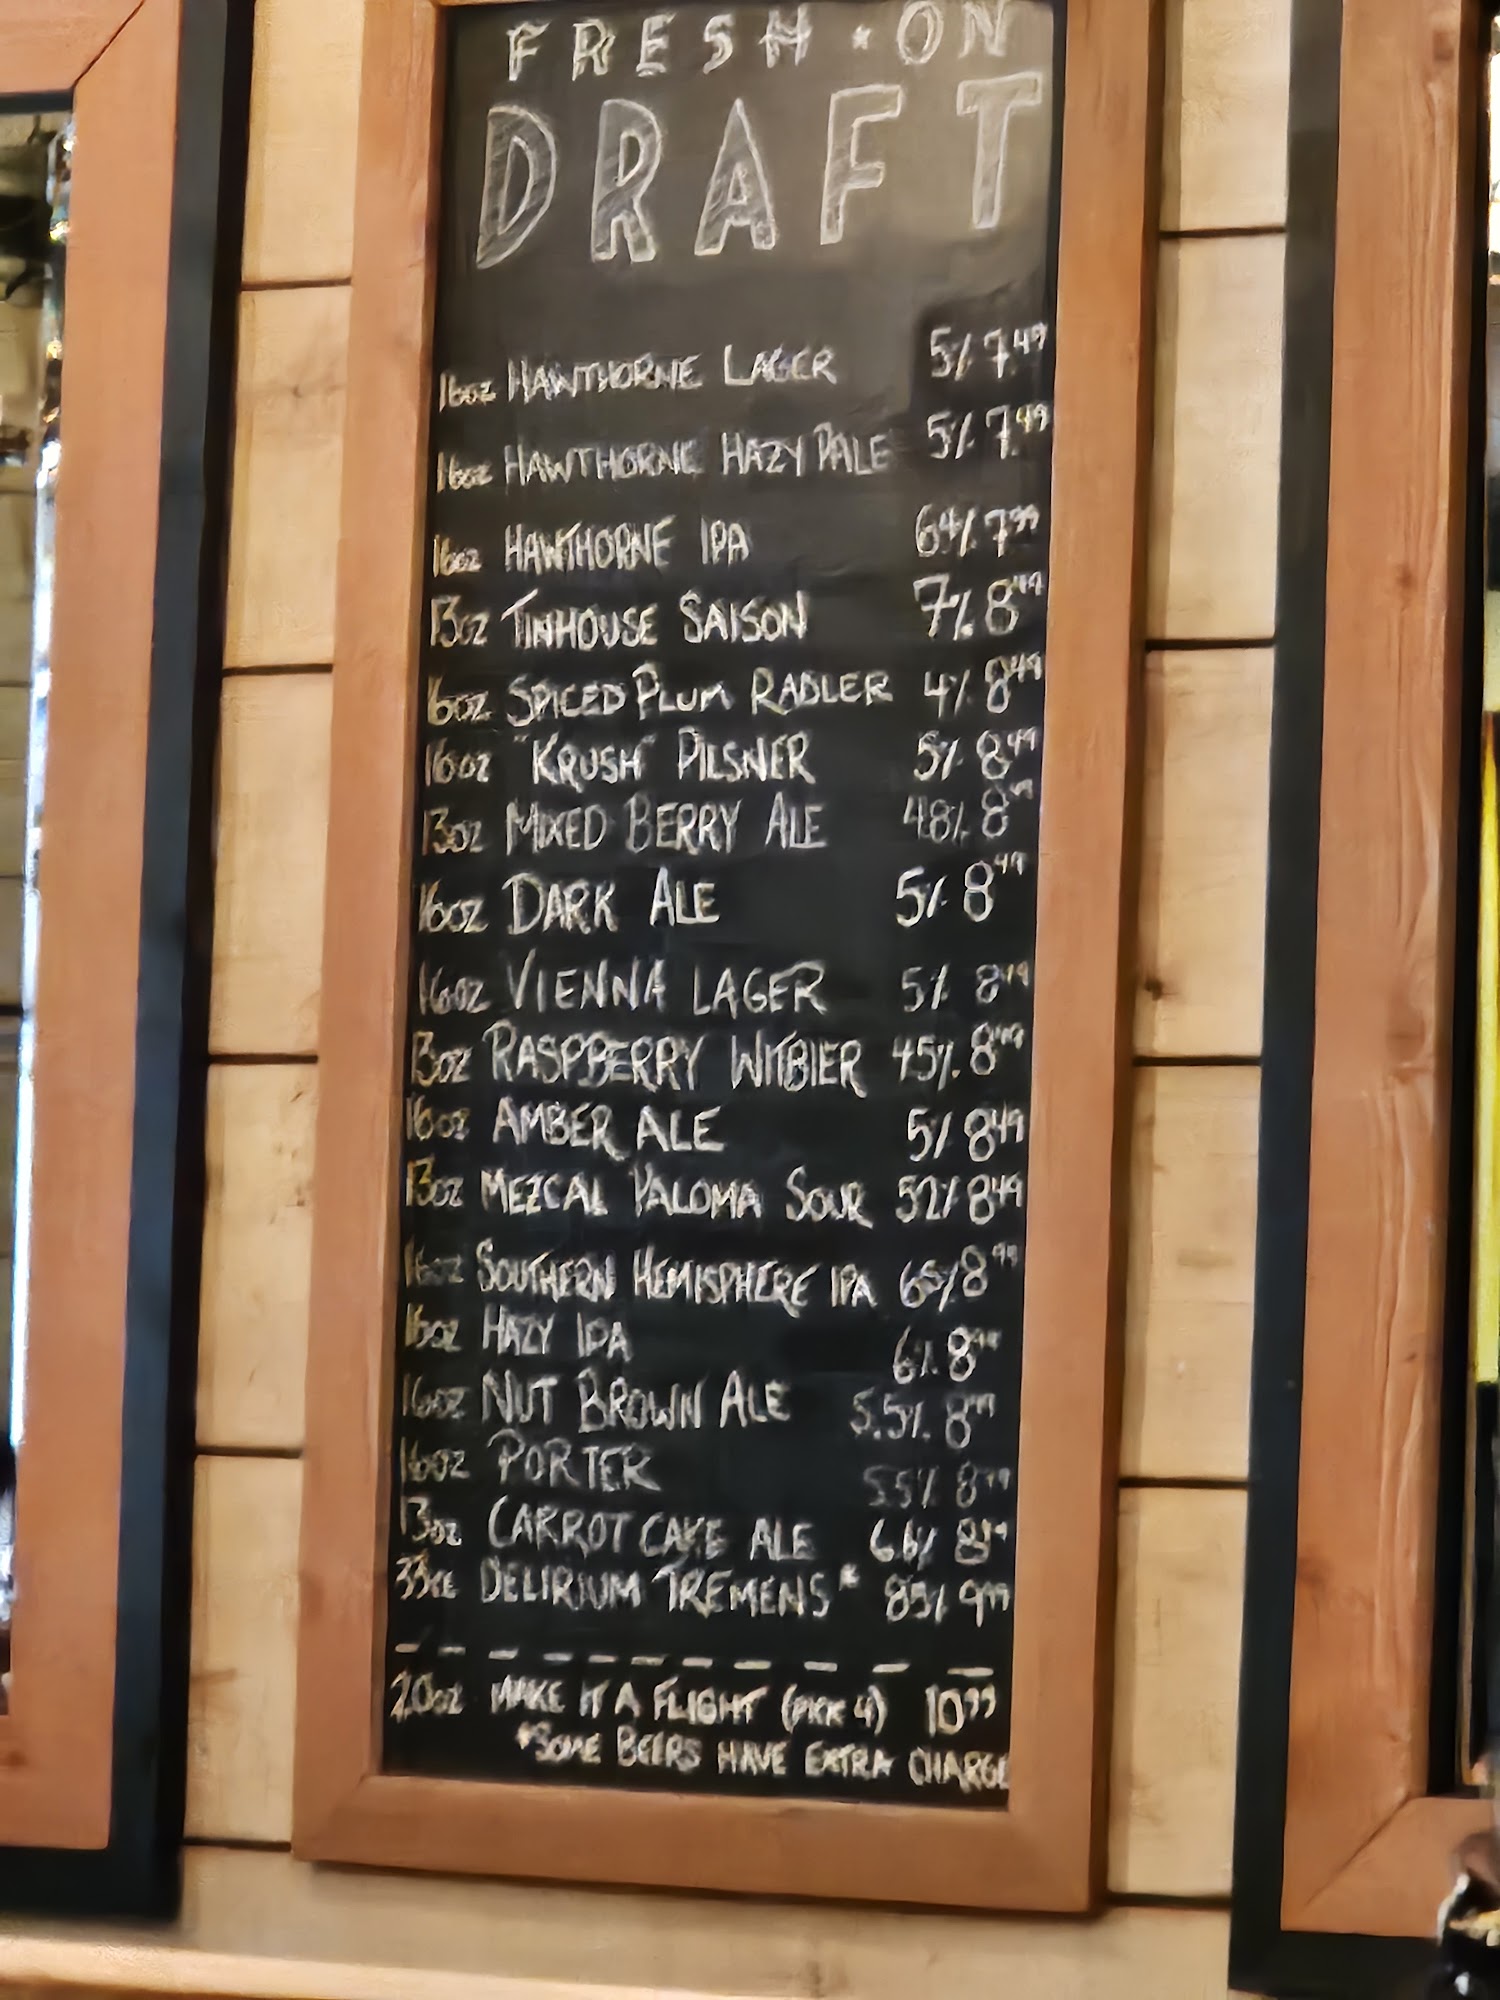 FRESH · ON
DRAFT
16oz HAWTHORNE LAGER 5% 7.49
16oz HAWTHORNE HAZY PALE 5% 7.49
16oz HAWTHORNE IPA 6.4% 7.99
13oz TINHOUSE SAISON 7% 8.49
16oz SPICED PLUM RADLER 4% 8.49
16oz "KRUSH" PILSNER 5% 8.49
13oz MIXED BERRY ALE 4.8% 8.49
16oz DARK ALE 5% 8.49
16oz VIENNA LAGER 5% 8.49
13oz RASPBERRY WITBIER 4.5% 8.49
16oz AMBER ALE 5% 8.49
13oz MEZCAL PALOMA SOUR 5.2% 8.49
16oz SOUTHERN HEMISPHERE IPA 6.5% 8.99
16oz HAZY IPA 6% 8.99
16oz NUT BROWN ALE 5.5% 8.99
16oz PORTER 5.5% 8.99
13oz CARROT CAKE ALE 6.6%
33cc DELIRIUM TREMENS* 8.5% 9.99
20oz MAKE IT A FLIGHT (PICK 4) 10.99
*SOME BEERS HAVE EXTRA CHARGE